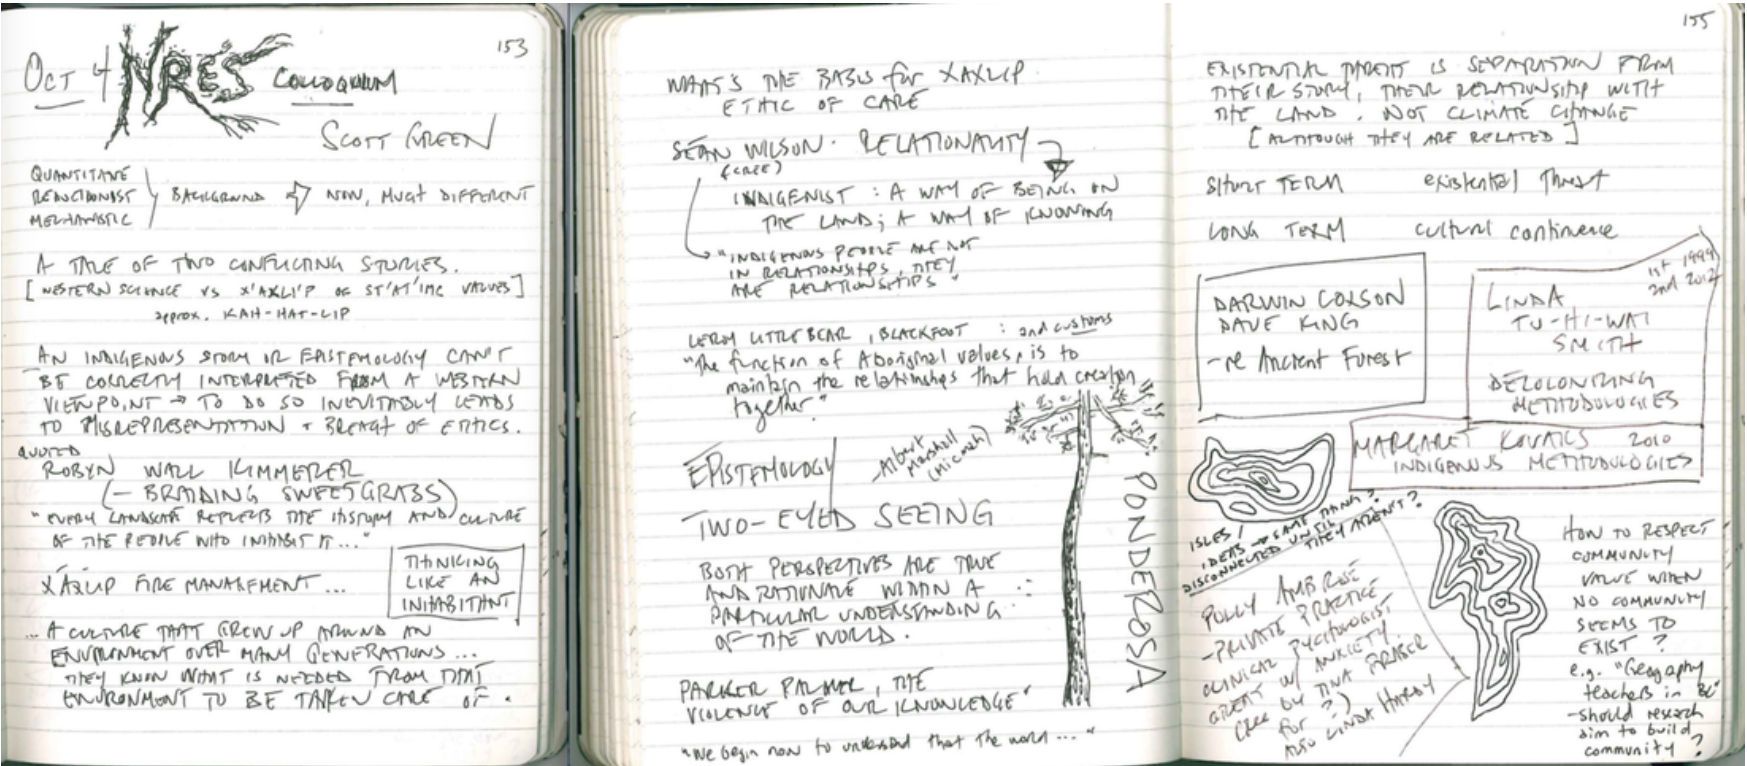 153
Oct 4 NRES COLLOQUIUM
SCOTT GREEN
QUANTITATIVE
REDUCTIONIST
MECHANISTIC
BACKGROUND ⇨ NOW, MUCH DIFFERENT
A TALE OF TWO CONFLICTING STORIES.
[WESTERN SCIENCE VS X'AXLI'P OR ST'AT'IMC VALUES]
approx. KAH-HAT-LIP
AN INDIGENOUS STORY OR EPISTEMOLOGY CAN'T
BE CORRECTLY INTERPRETED FROM A WESTERN
VIEWPOINT → TO DO SO INEVITABLY LEADS
TO MISREPRESENTATION + BREACH OF ETHICS.
QUOTED
ROBYN WALL KIMMERER
(- BRAIDING SWEETGRASS)
"EVERY LANDSCAPE REFLECTS THE HISTORY AND CULTURE
OF THE PEOPLE WHO INHABIT IT..."
THINKING
LIKE AN
INHABITANT
XAXLIP FIRE MANAGEMENT ...
... A CULTURE THAT GREW UP AROUND AN
ENVIRONMENT OVER MANY GENERATIONS ...
THEY KNOW WHAT IS NEEDED FROM THAT
ENVIRONMENT TO BE TAKEN CARE OF.
WHAT'S THE BASIS for XAXLIP
ETHIC OF CARE
SEAN WILSON. RELATIONALITY
(CREE)
INDIGENIST : A WAY OF BEING ON
THE LAND; A WAY OF KNOWING
"INDIGENOUS PEOPLE ARE NOT
IN RELATIONSHIPS, THEY
ARE RELATIONSHIPS"
LEROY LITTLE BEAR, BLACKFOOT : and customs
"The function of Aboriginal values, is to
maintain the relationships that hold creation
together."
EPISTEMOLOGY
Albert
Marshall
(Micmah)
TWO-EYED SEEING
BOTH PERSPECTIVES ARE TRUE
AND RATIONALE WITHIN A
PARTICULAR UNDERSTANDING
OF THE WORLD.
PONDEROSA
PARKER PALMER, THE
VIOLENCE OF OUR KNOWLEDGE"
"We begin now to understand that the world ..."
155
EXISTENTIAL THREAT IS SEPARATION FROM
THEIR STORY, THEIR RELATIONSHIP WITH
THE LAND. NOT CLIMATE CHANGE
[ALTHOUGH THEY ARE RELATED]
SHORT TERM existential threat
LONG TERM cultural continence
DARWIN COLSON
DAVE KING
-re Ancient Forest
1st 1999
2nd 2012
LINDA
TU-HI-WAI
SMITH
DECOLONIZING
METHODOLOGIES
MARGARET KOVACKS 2010
INDIGENUS METHODOLOGIES
ISLES /
IDEAS → SAME THING?
DISCONNECTED UNTIL THEY AREN'T?
POLLY AMBROSE
- PRIVATE PRACTICE
CLINICAL PSYCHOLOGIST
GREAT W/ ANXIETY.
(REC BY TINA FRASER
for ?)
ALSO LINDA HARDY
HOW TO RESPECT
COMMUNITY
VALUE WHEN
NO COMMUNITY
SEEMS TO
EXIST ?
e.g. "Geography
teachers in BC"
- should research
aim to build
community ?